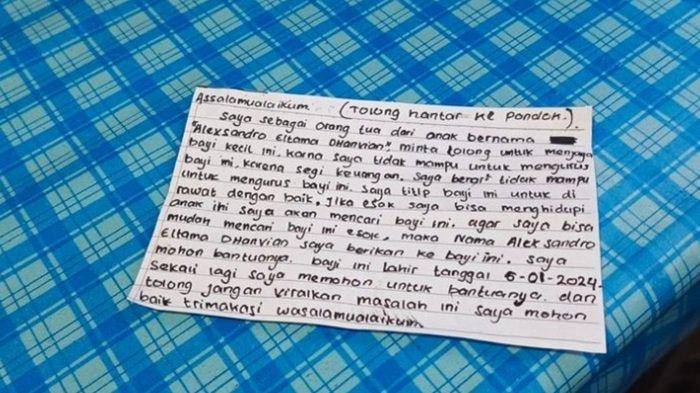 Assalamualaikum (Tolong hantar ke pondok.).
Saya sebagai orang tua dari anak bernama
"Alexsandro Eltama Dhanvian" minta tolong untuk menjaga
bayi kecil ini. Karna saya tidak mampu untuk mengurus
bayi ini. Karena segi keuangan. Saya benar² tidak mampu
untuk mengurus bayi ini. Saya titip bayi ini untuk di
rawat dengan baik, Jika esok saya bisa menghidupi
anak ini saya akan mencari bayi ini. agar saya bisa
mudah mencari bayi ini esok, maka Nama Alexsandro
Eltama Dhanvian saya berikan ke bayi ini. saya
mohon bantuanya. bayi ini lahir tanggal 5-01-2024.
Sekali lagi saya memohon untuk bantuanya. dan
tolong jangan viralkan masalah ini saya mohon
baik trimakasi wasalamualaikum